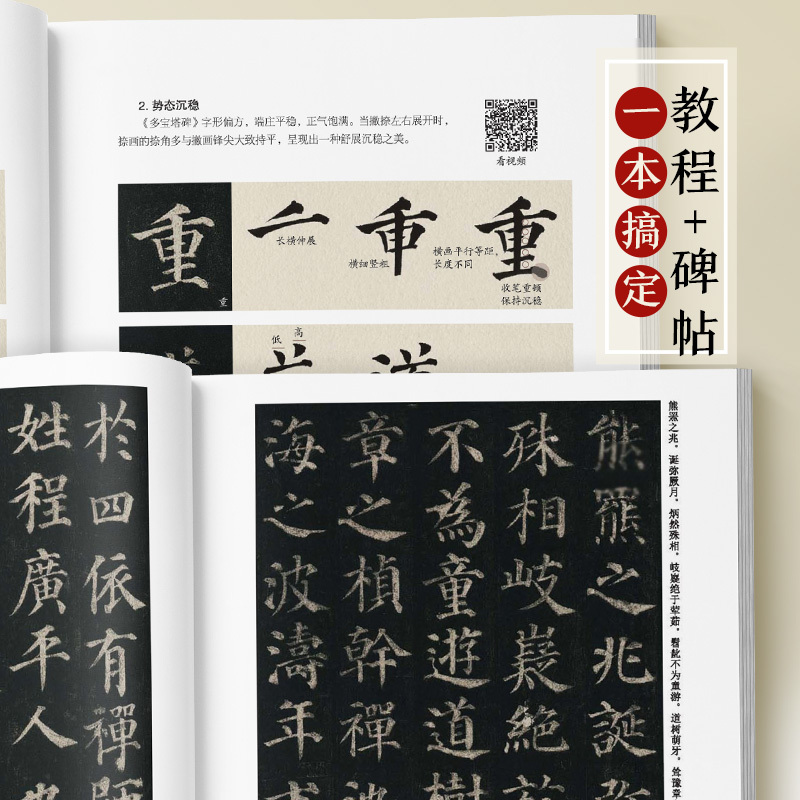 教程+碑帖
一本搞定
2. 势态沉稳
《多宝塔碑》字形偏方，端庄平稳，正气饱满。当撇捺左右展开时，
捺画的捺角多与撇画锋尖大致持平，呈现出一种舒展沉稳之美。
看视频
重
重
长横伸展
横细竖粗
重
横画平行等距，
长度不同
收笔重顿
保持沉稳
低
高
熊罴之兆，诞弥厥月，炳然殊相，岐嶷绝于荤茹，髫龀不为童游。道树萌牙，耸豫章
熊羆之兆誕
殊相岐嶷絕
不為童遊道樹
章之楨幹禪
海之波濤年
於四依有禪
姓程廣平人